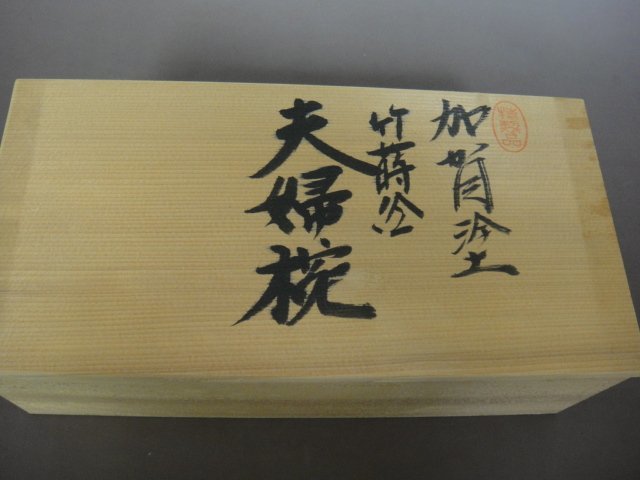 加賀塗
竹蒔絵
夫婦椀